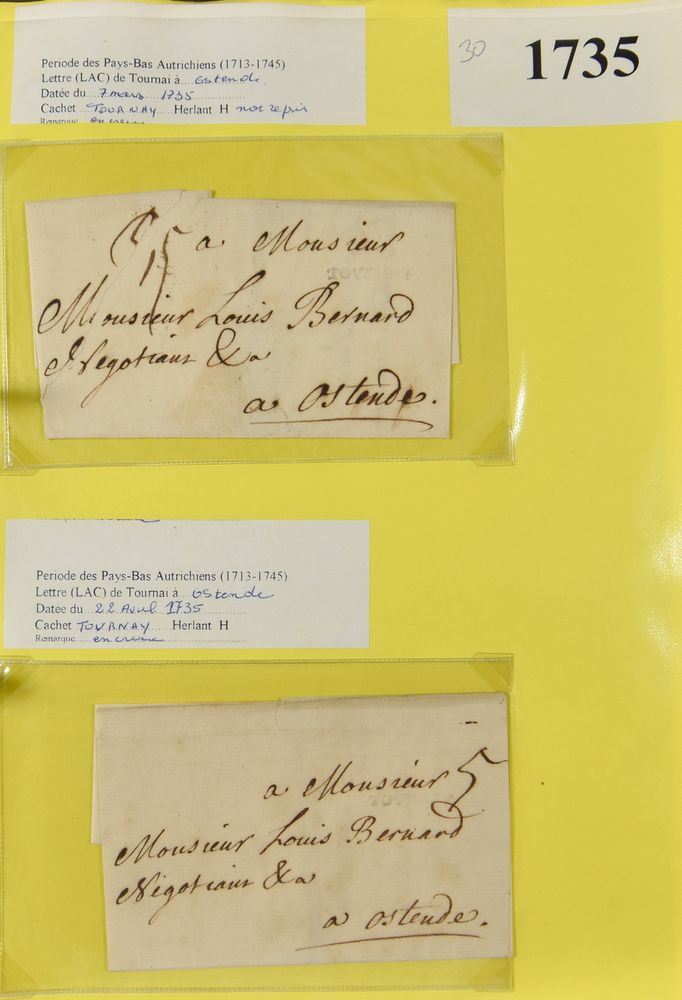 Periode des Pays-Bas Autrichiens (1713-1745)
Lettre (LAC) de Tournai à Ostende
Datée du 7 mars 1735
Cachet TOURNAY Herlant H non repris
Remarque en creux
30
1735
5 a Monsieur
Monsieur Louis Bernard
Negotiant &a
a Ostende.
Periode des Pays-Bas Autrichiens (1713-1745)
Lettre (LAC) de Tournai à Ostende
Datée du 22 Avril 1735
Cachet TOVRNAY Herlant H
Remarque en creux
a Monsieur 5
Monsieur Louis Bernard
Négotiant &a
a Ostende.